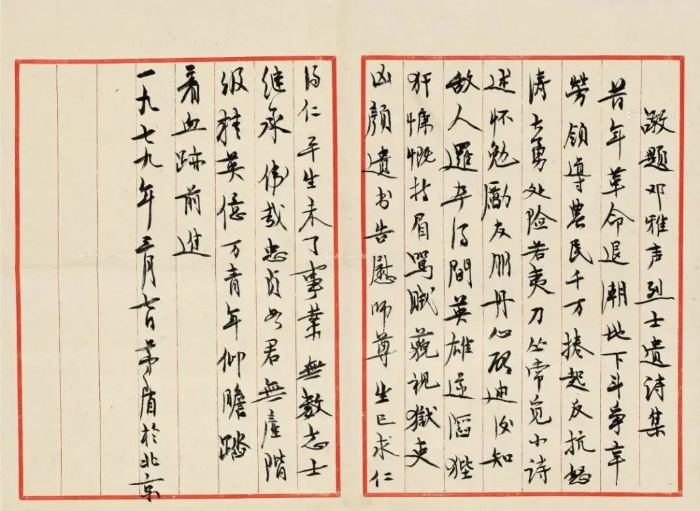 敬题邓雅声烈士遗诗集
昔年革命退潮地下斗争辛
劳领导農民千万捲起反抗怒
涛大勇处险若夷刀丛常觅小诗
述怀勉励友朋丹心知
敌人邏卒得间英雄遂陷狴
犴慷慨眉骂贼藐视獄吏
凶颜遗书告慰师尊生已求仁
得仁平生未了事業無数志士
继承偉哉忠贞如君無產階
级精英億万青年仰瞻踏
着血跡前進
一九七九年三月七日茅盾於北京